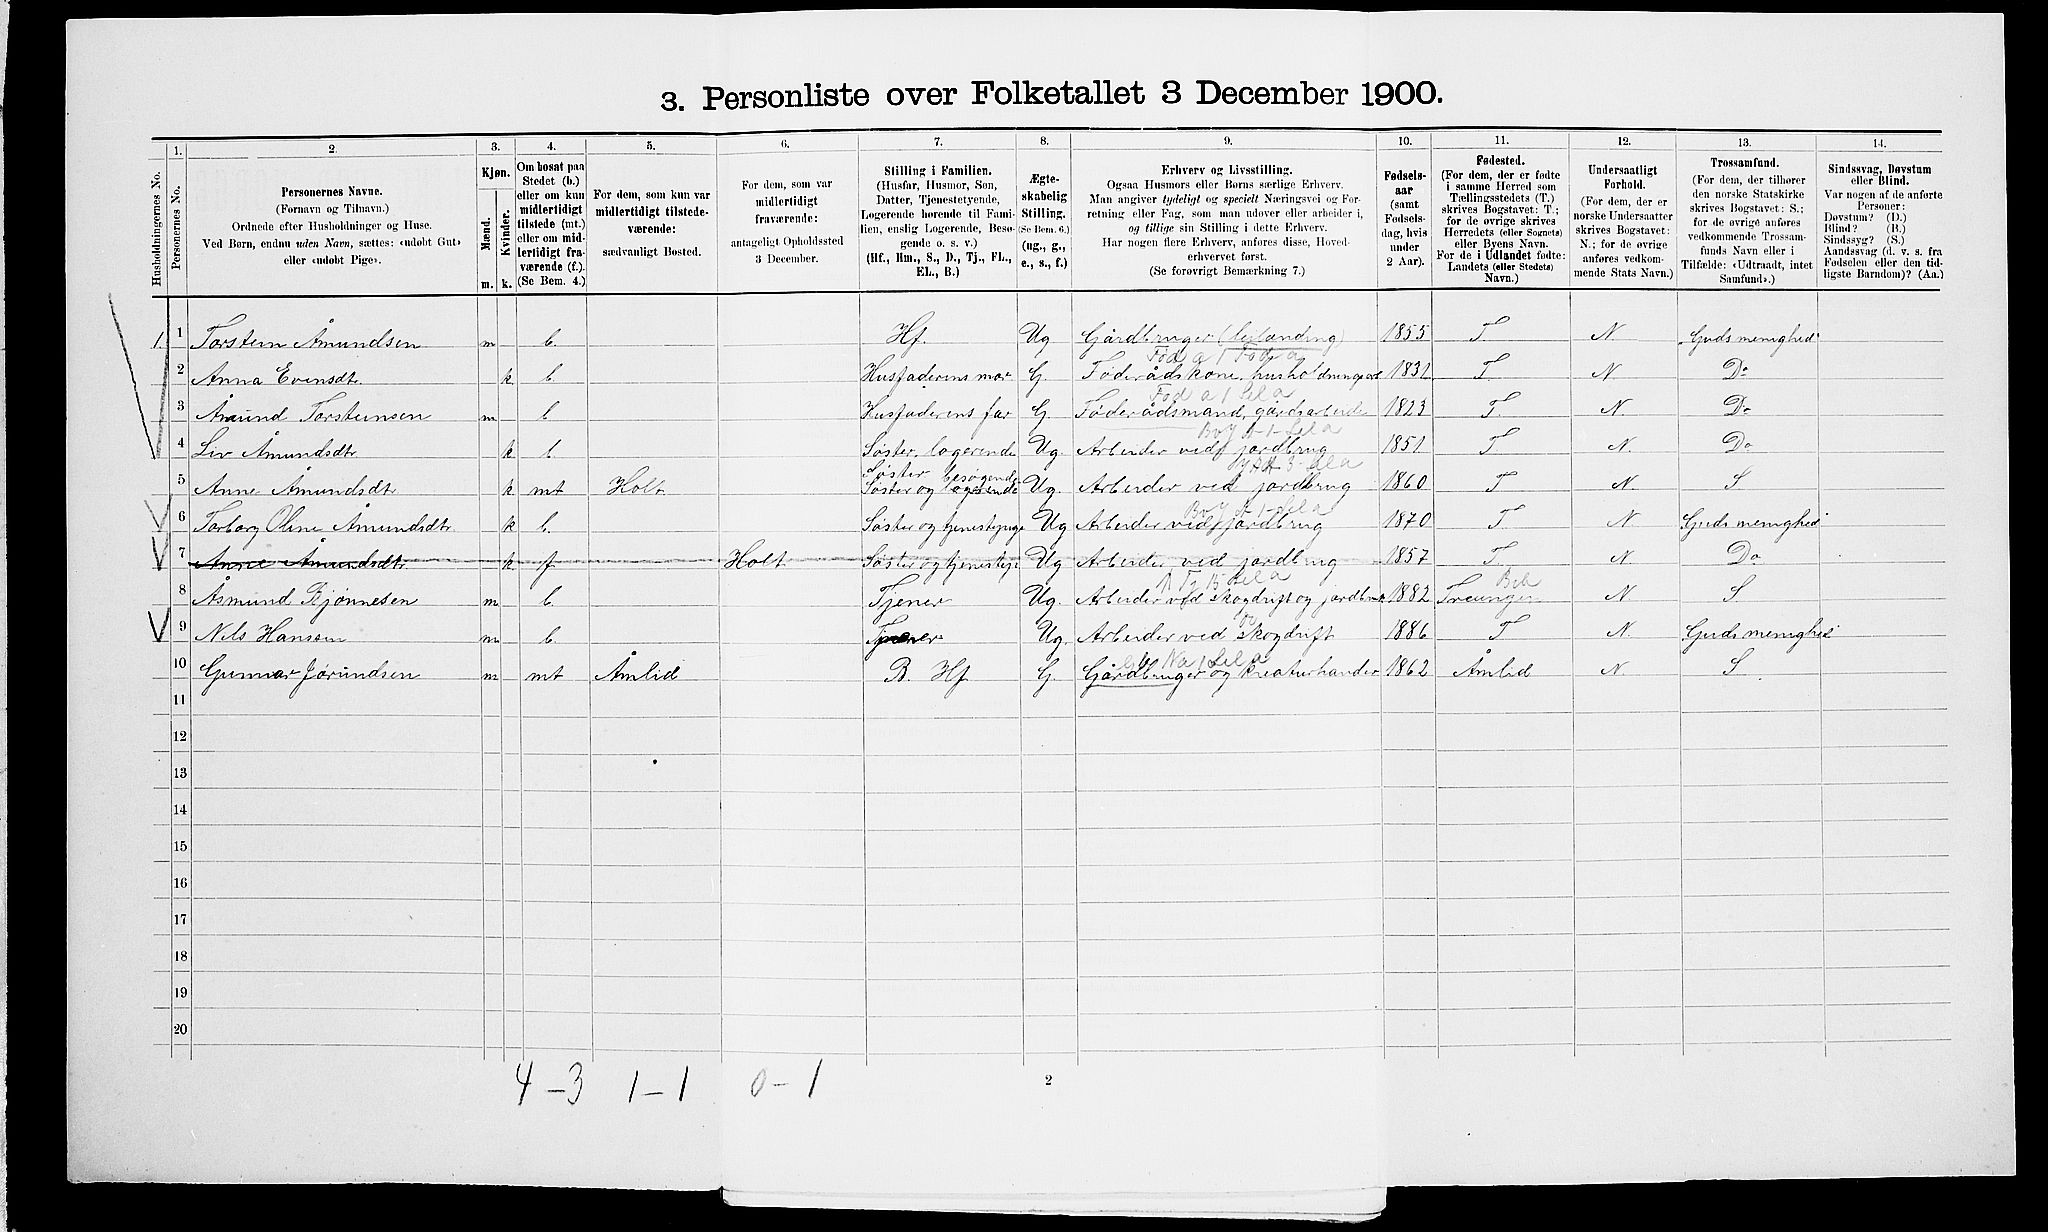 3. Personliste over Folketallet 3 December 1900.
1. 2. 3. 4. 5. 6. 7. 8. 9. 10. 11. 12. 13. 14.
Husholdningernes No.
Personernes No.
Personernes Navne.
(Fornavn og Tilnavn.)
Ordnede efter Husholdninger og Huse.
Ved Børn, endnu uden Navn, sættes: «udøbt Gut»
eller «udøbt Pige».
Kjøn.
Mænd.
Kvinder.
m. k.
Om bosat paa
Stedet (b.)
eller om kun
midlertidigt
tilstede (mt.)
eller om mid-
lertidigt fra-
værende (f.).
(Se Bem. 4.)
For dem, som kun var
midlertidigt tilstede-
værende:
sædvanligt Bosted.
For dem, som var
midlertidigt
fraværende:
antageligt Opholdssted
3 December.
Stilling i Familien.
(Husfar, Husmor, Søn,
Datter, Tjenestetyende,
Logerende hørende til Fami-
lien, enslig Logerende, Besø-
gende o. s. v.)
(Hf., Hm., S., D., Tj., FL.,
EL., B.)
Ægte-
skabelig
Stilling.
(Se Bem. 6.)
(ug., g.,
e., s., f.)
Erhverv og Livsstilling.
Ogsaa Husmors eller Børns særlige Erhverv.
Man angiver tydeligt og specielt Næringsvei og For-
retning eller Fag, som man udøver eller arbeider i,
og tillige sin Stilling i dette Erhverv.
Har nogen flere Erhverv, anføres disse, Hoved-
erhvervet først.
(Se forøvrigt Bemærkning 7.)
Fødsels-
aar
(samt
Fødsels-
dag, hvis
under
2 Aar).
Fødested.
(For dem, der er fødte
i samme Herred som
Tællingsstedets (T.)
skrives Bogstavet: T.;
for de øvrige skrives
Herredets (eller Sognets)
eller Byens Navn.
For de i Udlandet fødte:
Landets (eller Stedets)
Navn.)
Undersaatligt
Forhold.
(For dem, der er
norske Undersaatter
skrives Bogstavet:
N.; for de øvrige
anføres vedkom-
mende Stats Navn.)
Trossamfund.
(For dem, der tilhører
den norske Statskirke
skrives Bogstavet: S.;
for de øvrige anføres
vedkommende Trossam-
funds Navn eller i
Tilfælde: «Udtraadt, intet
Samfund».)
Sindssvag, Døvstum
eller Blind.
Var nogen af de anførte
Personer:
Døvstum? (D.)
Blind? (B.)
Sindssyg? (S.)
Aandssvag (d. v. s. fra
Fødselen eller den tid-
ligste Barndom)? (Aa.)
1. 1 Torstein Åmundsen m b. Hf. Ug Gårdbruger (seilænding) 1855 T. N. Guds menighed
Fød a 1 Fød a
2 Anna Evensdtr. k b. Husfaderens mor G. Føderådskone, husholdningsarb 1831 T. N. Do
Fød a 1 Sela
3 Åmund Torsteinsen m b Husfaderens far G. Føderådsmand, gårdsarbeide 1823 T. N. Do
4 Liv Åmundsdtr k b Søster, logerende Ug. Arbeider ved jordbrug 1851 T. N. Do
Søster, besøgende
5 Anne Åmundsdtr k mt Holt Søster og logerende Ug. Arbeider ved jordbrug 1860 T N. S
6 Torborg Oline Åmundsdtr. k b. Søster og tjenestepige Ug Arbeider ved jordbrug 1870 T. N Guds menighed
7 Anne Åmundsdtr k f Holt Søster og tjenestepi Ug Arbeider ved jordbrug 1857 T. N. Do
8 Åsmund Fjønnesen m b. Tjener Ug. Arbeider ved skogdrift og jordbruk 1882 Treungen N S
9 Nils Hanssen m b. Tjener Ug. Arbeider ved skogdrift 1886 T N. Guds menighed
10 Gunnar Jørundsen m mt Åmlid B. Hf G. Gårdbruger og kreaturhandler 1862 Åmlid N. S
11
12
13
14
15
16
17
18
19
20
4 – 3 1 – 1 0 – 1
2